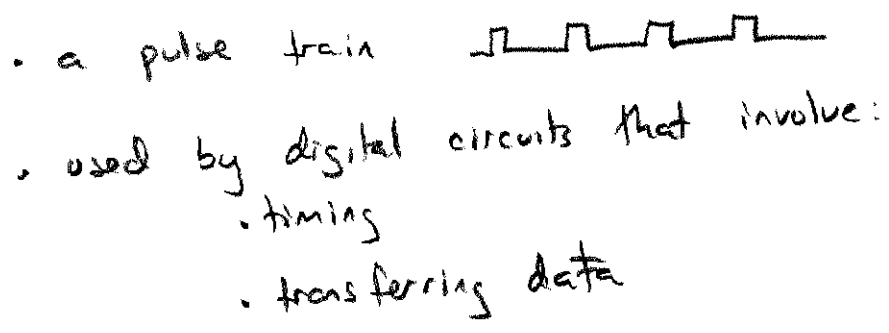 • a pulse train
• used by digital circuits that involve:
• timing
• transferring data